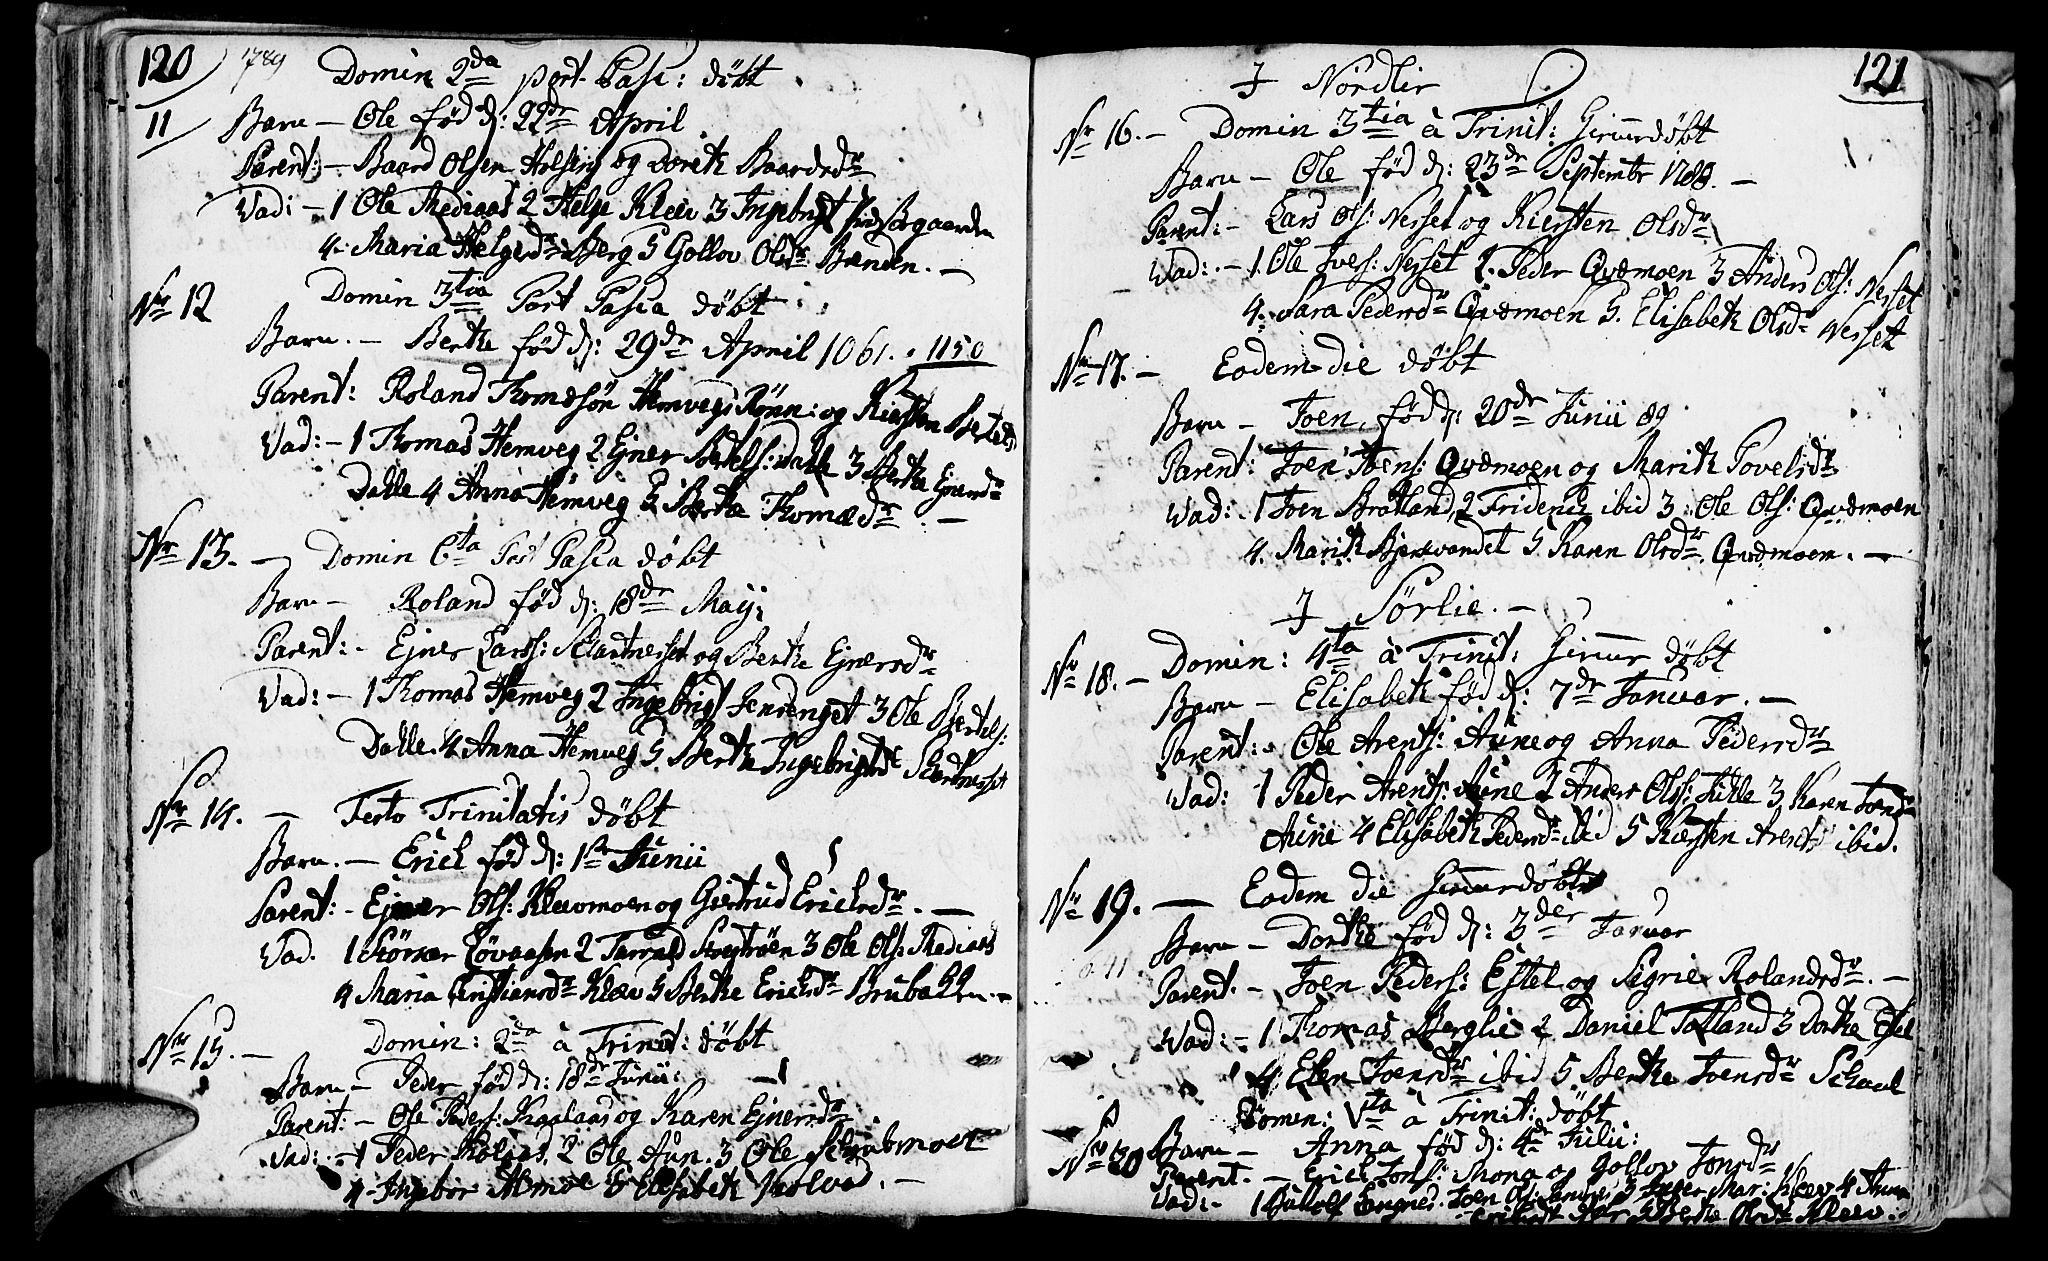 120 1789
Domin 2da post Pasc: døbt
11
Barn - Ole fød d: 22de April
Parent: - Baard Olsen Holsing og Doreth Baardsdr
Vad: - 1 Ole Mediaas 2 Helge Kleiv 3 Ingebrigt
4. Maria Helgesdr Berg 5 Gollov Olsdr Bænden. -
Nr 12 Domin 3tia Post Pasca døbt
Barn. - Berthe fød d: 29de April 1061. 1150
Parent: Roland Thomesøn Hemvegs Rønn: og Kiersten Bertels
Vad: - 1 Thomas Hemveg 2 Ejner Bertels: Dahle 3 Berthe Ejnersdr
Dahle 4 Anna Hemveg 5 Berthe Thomædr -
Nr 13. - Domin 6ta Post Pasca døbt
Barn - Roland fød d: 18de Maij
Parent: - Ejner Larss: Skartnesset og Berthe Ejnersdr
Vad: - 1 Thomas Hemveg 2 Ingebrigt Jenrenget 3 Ole Bertels:
Dahle 4 Anna Hemveg 5 Berth Ingebrigtsdr Skartnesset
Nr 14. - Festo Trinitatis døbt
Barn. - Erich fød d: 1ste Junii
Parent: - Ejner Ols: Kleivmoen og Giertrud Erichsdr. -
Vad. 1 Størkar Løvaasen 2 3 Ole Ols: Mediaas
4 Maria Christiansdr Klæv 5 Berthe Erichsdr Brubakken. -
Nr 15. - Domin: 2da à Trinit: døbt
Barn - Peder fød d: 18de Junii:
Parent: - Ole Peders: Kaalaas og Karen Ejnersdr
Vad: - 1 Peder Kolaas 2 Ole Aun. 3 Ole Skrubmoen
4 Ingebor Almoe 5 Elisabeth Holvad. -
121
I Nordlir
Nr 16. - Domin 3tia à Trinit: Hiemmdøbt
Barn - Ole fød d: 23de Septembr 1788. -
Parent: - Lars Ols: Nesset og Kiersten Olsdr
Vad: - 1. Ole Ivers: Nesset 2. Peder Qvæmoen 3 Anders Ols: Nesset
4. Sara Pedersdr Qvæmoen 5. Elisabeth Olsdr Nesset
Nr 17. - Eodem die døbt
Barn - Joen fød d: 20de Junii 89
Parent: Joen Joens: Qvæmoen og Marith Povelsdr
Vad: 1 Joen Bratland, 2 Friderich ibid 3 Ole Ols: Qvæmoen
4. Marith Bjørvandet 5. Karen Olsdr Qvæmoen. -
I Sørlie. -
Nr 18. - Domin: 4ta à Trinit: Hiemmedøbt
Barn - Elisabeth fød d: 7de Januar. -
Parent: - Ole Arents: Aune og Anna Pedersdr
Vad: 1 Peder Arents: Aune 2 Anders Ols: Jule 3 Karen Jonsdr
Aune 4 Elisabeth Pedersdr ibid 5 Kiersten Arents ibid.
Nr 19. - Eodem die Hiemmdøbt
Barn - Dorthe fød d: 3die Januar
Parent. - Joen Peders: Estel og Sigrie Rolandsdr. -
Vad: - 1 Thomas Berglie 2 Daniel Totland 3 Dorthe Estel
4. Elen Joensdr ibid 5. Berthe Joensdr Schaal
Domin: Vta à Trinit: døbt
Nr 20 Barn - Anna fød d: 4de Julii:
Parent. - Erich Jons: Mona og Gollov Jonsdr
Vad: - 1 4 Anna
Berthe Olsdr Kleev.